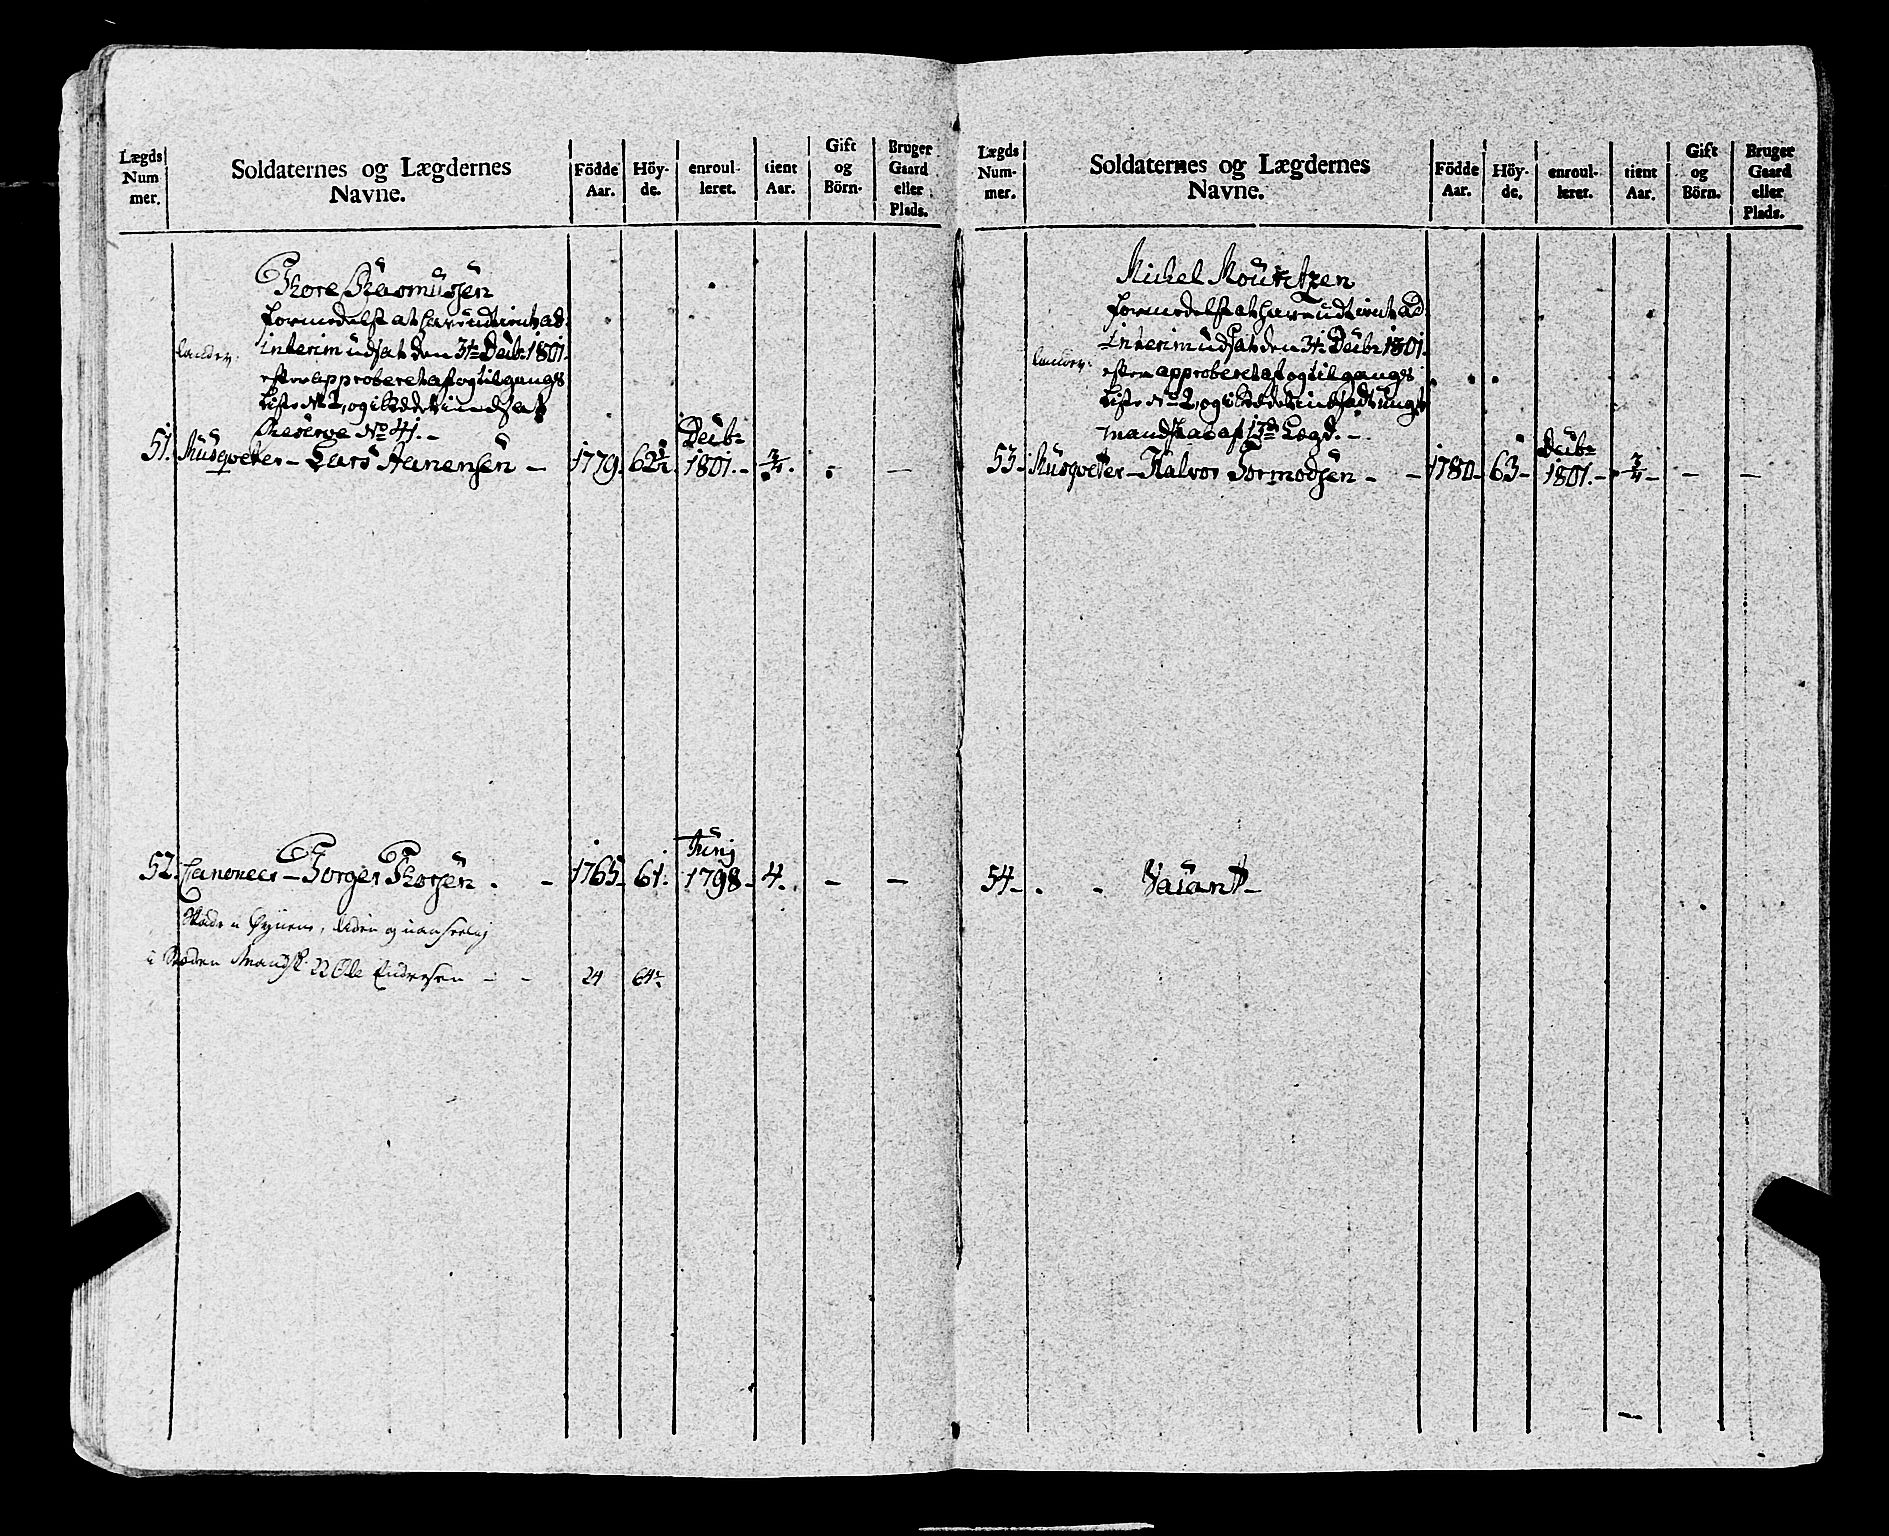 Lægds
Num
mer.
Soldaternes og Lægdernes
Navne.
Födde
Aar.
Höy-
de.
enroul-
leret.
tient
Aar.
Gift
og
Börn.
Bruger
Gaard
eller
Plads.
Thore Rasmussen
formedelst at have udtient ad
interim udsat den 31te Decbr 1801.
efter approberet af og tilgangs
Liste No 2, og i stedet indsat
Reserve No 41. -
51. Musqveter - Lars Hansen - 1779. 62½ Decbr 1801. - ¾. -
52. Canoneer - Torger Thorsen. - 1765. 61. Junj 1798 - 4. - -
i Stæden Mandsk. Ole Endersen - - 24 64
Lægds
Num-
mer.
Soldaternes og Lægdernes
Navne.
Födde
Aar.
Höy-
de.
enroul-
leret.
tient
Aar.
Gift
og
Börn.
Bruger
Gaard
eller
Plads.
Michel Mouritzen
formedelst at have udtient ad
interim udsat den 31te Decbr 1801.
efter approberet af og tilgangs
Liste No 2, og i stedet indsadt ungt
mandskab af Lægd. -
53 - Musqveter - Halvor Tormodsen - - 1780 - 63 - Decbr 1801. - ¾ - - -
54 - . - Vacant -